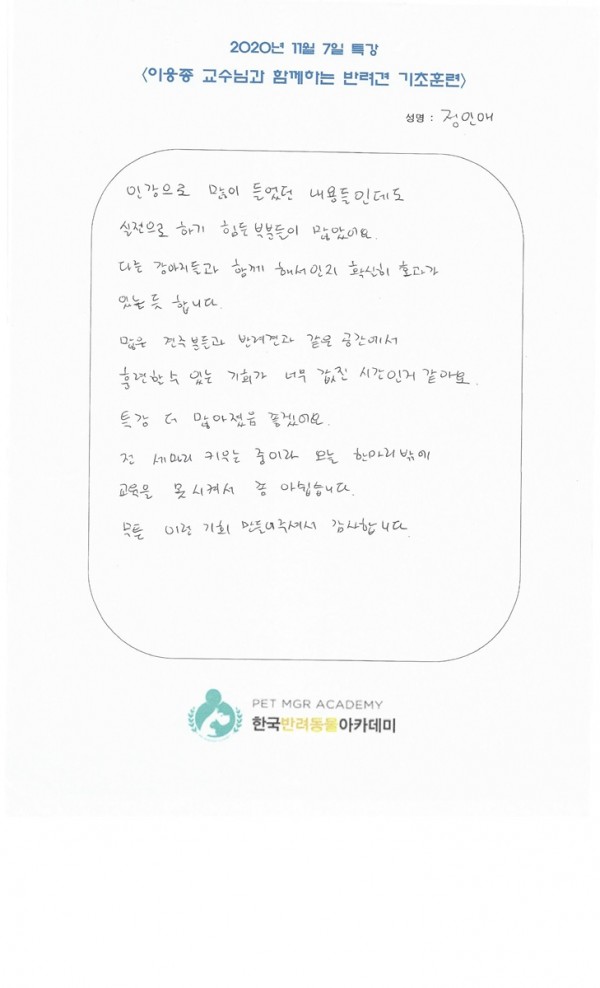 2020년 11월 7일 특강
<이웅종 교수님과 함께하는 반려견 기초훈련>
성명 : 정인애
인강으로 많이 들었던 내용들인데도
실전으로 하기 힘든 부분들이 많았어요.
다른 강아지들과 함께 해서인지 확실히 효과가
있는듯 합니다.
많은 견주분들과 반려견과 같은 공간에서
훈련할수 있는 기회가 너무 값진 시간인거 같아요.
특강 더 많아졌음 좋겠어요.
전 세마리 키우는 중이라 오늘 한마리밖에
교육을 못시켜서 좀 아쉽습니다.
무튼 이런 기회 만들어주셔서 감사합니다.
PET MGR ACADEMY
한국반려동물아카데미